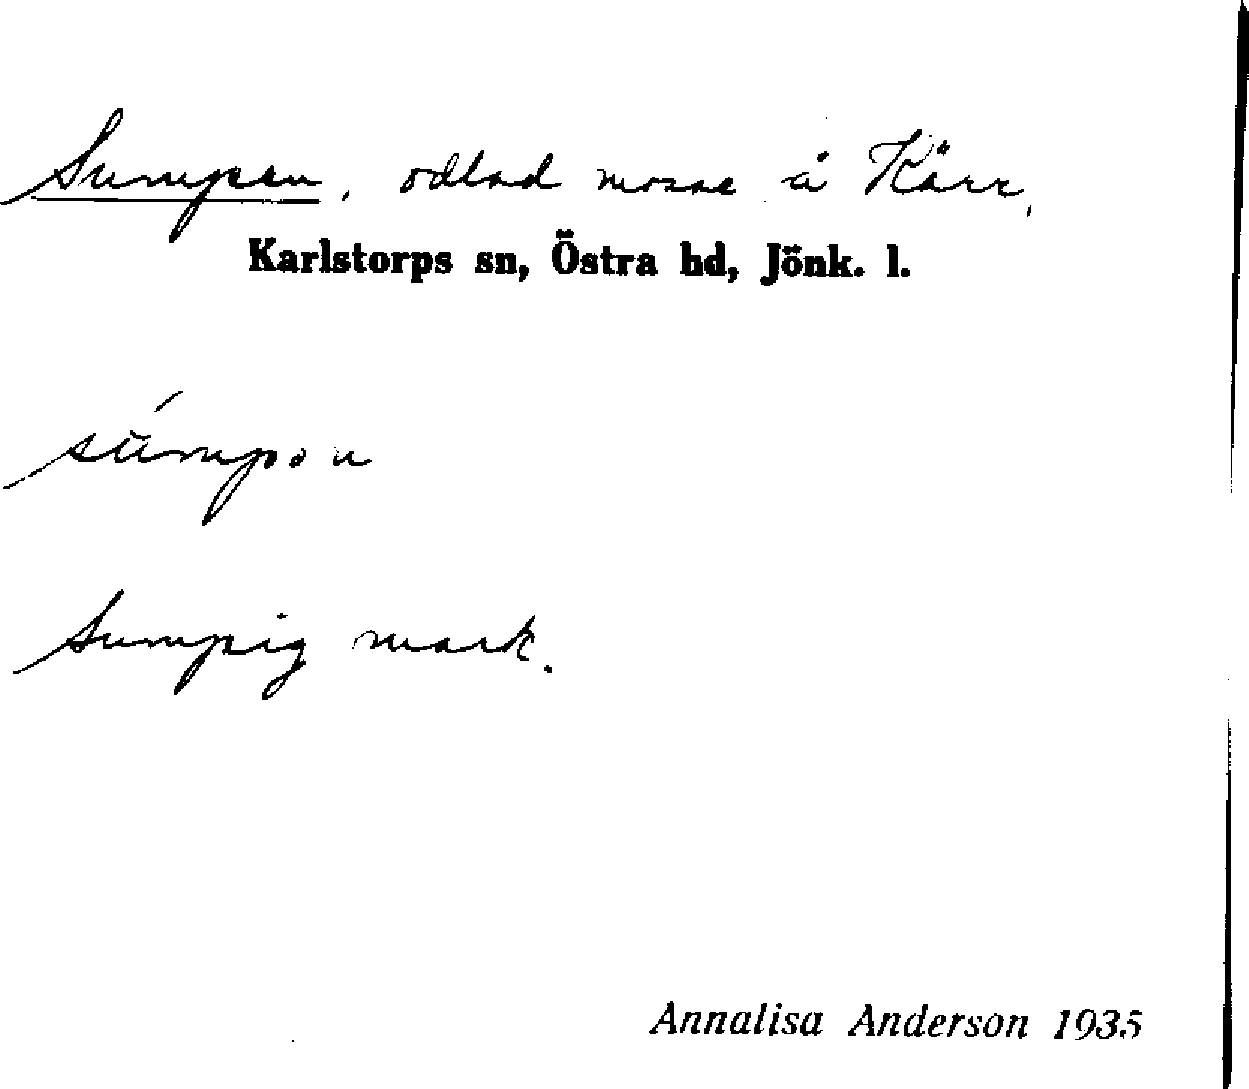 Sumpen, odlad mosse å Kärr,
Karlstorps sn, Östra hd, Jönk. l.
súmpən
Sumpig mark.
Annalisa Anderson 1935